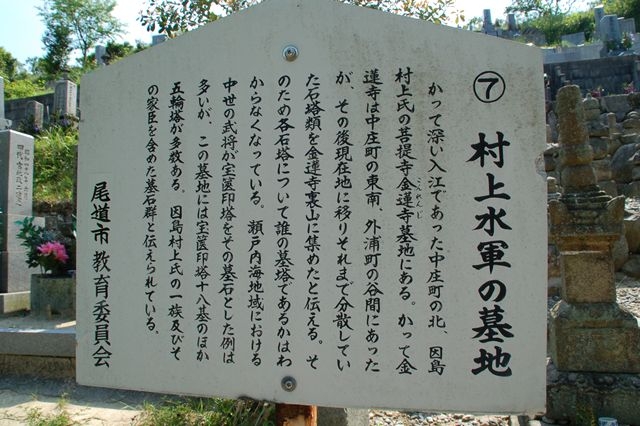 ⑦ 村上水軍の墓地
かつて深い入江であった中庄町の北、因島
村上氏の菩提寺金蓮寺墓地にある。かつて金
蓮寺は中庄町の東南、外浦町の谷間にあった
が、その後現在地に移りそれまで分散してい
た石塔類を金蓮寺裏山に集めたと伝える。そ
のため各石塔について誰の墓塔であるかはわ
からなくなっている。瀬戸内海地域における
中世の武将が宝篋印塔をその墓石とした例は
多いが、この墓地には宝篋印塔十八基のほか
五輪塔が多数ある。因島村上氏の一族及びそ
の家臣を含めた墓石群と伝えられている、
尾道市教育委員会